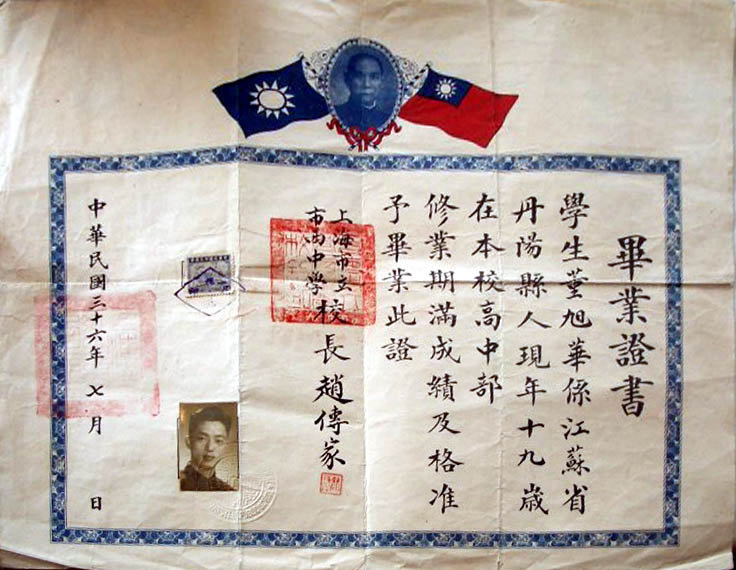 畢業證書
學生董旭華係江蘇省
丹陽縣人現年十九歲
在本校高中部
修業期滿成績及格准
予畢業此證
上海市立
市西中學
校長趙傳家
中華民國三十六年七月 日